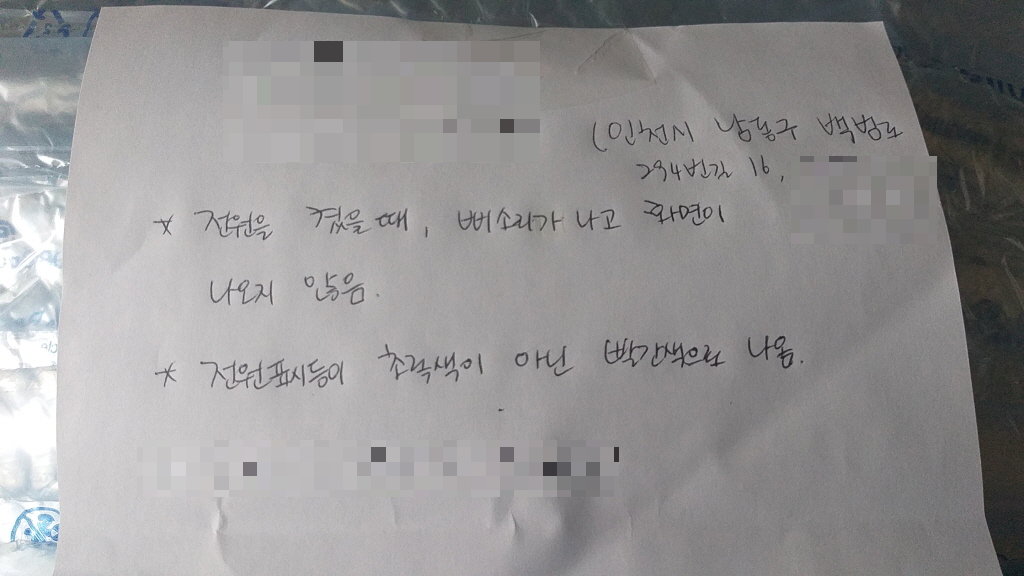 (인천시 남동구 백범로
294번길 16,
* 전원을 켰을 때, 삐소리가 나고 화면이
나오지 않음.
* 전원표시등이 초록색이 아닌 빨간색으로 나옴.